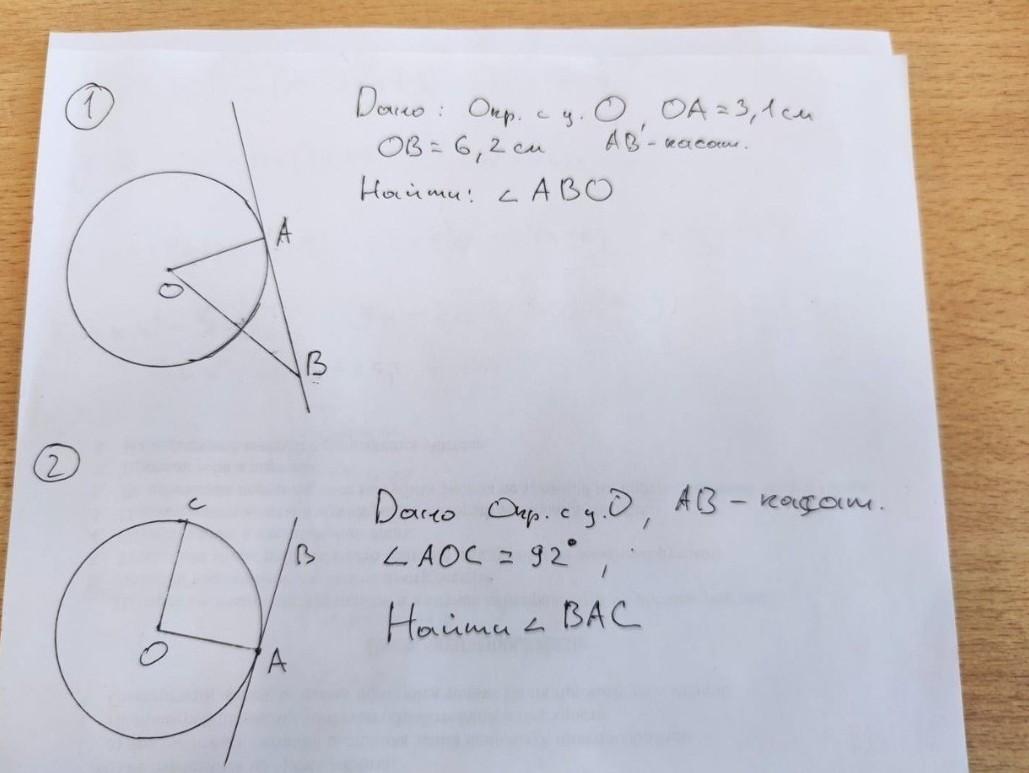 1
Дано: Окр. с ц. О, OA = 3,1 см
OB = 6,2 см AB - касат.
Найти: ∠ ABO
A
O
B
2
Дано Окр. с ц. О, AB - касат.
∠AOC = 92°;
Найти ∠ BAC
C
B
O
A